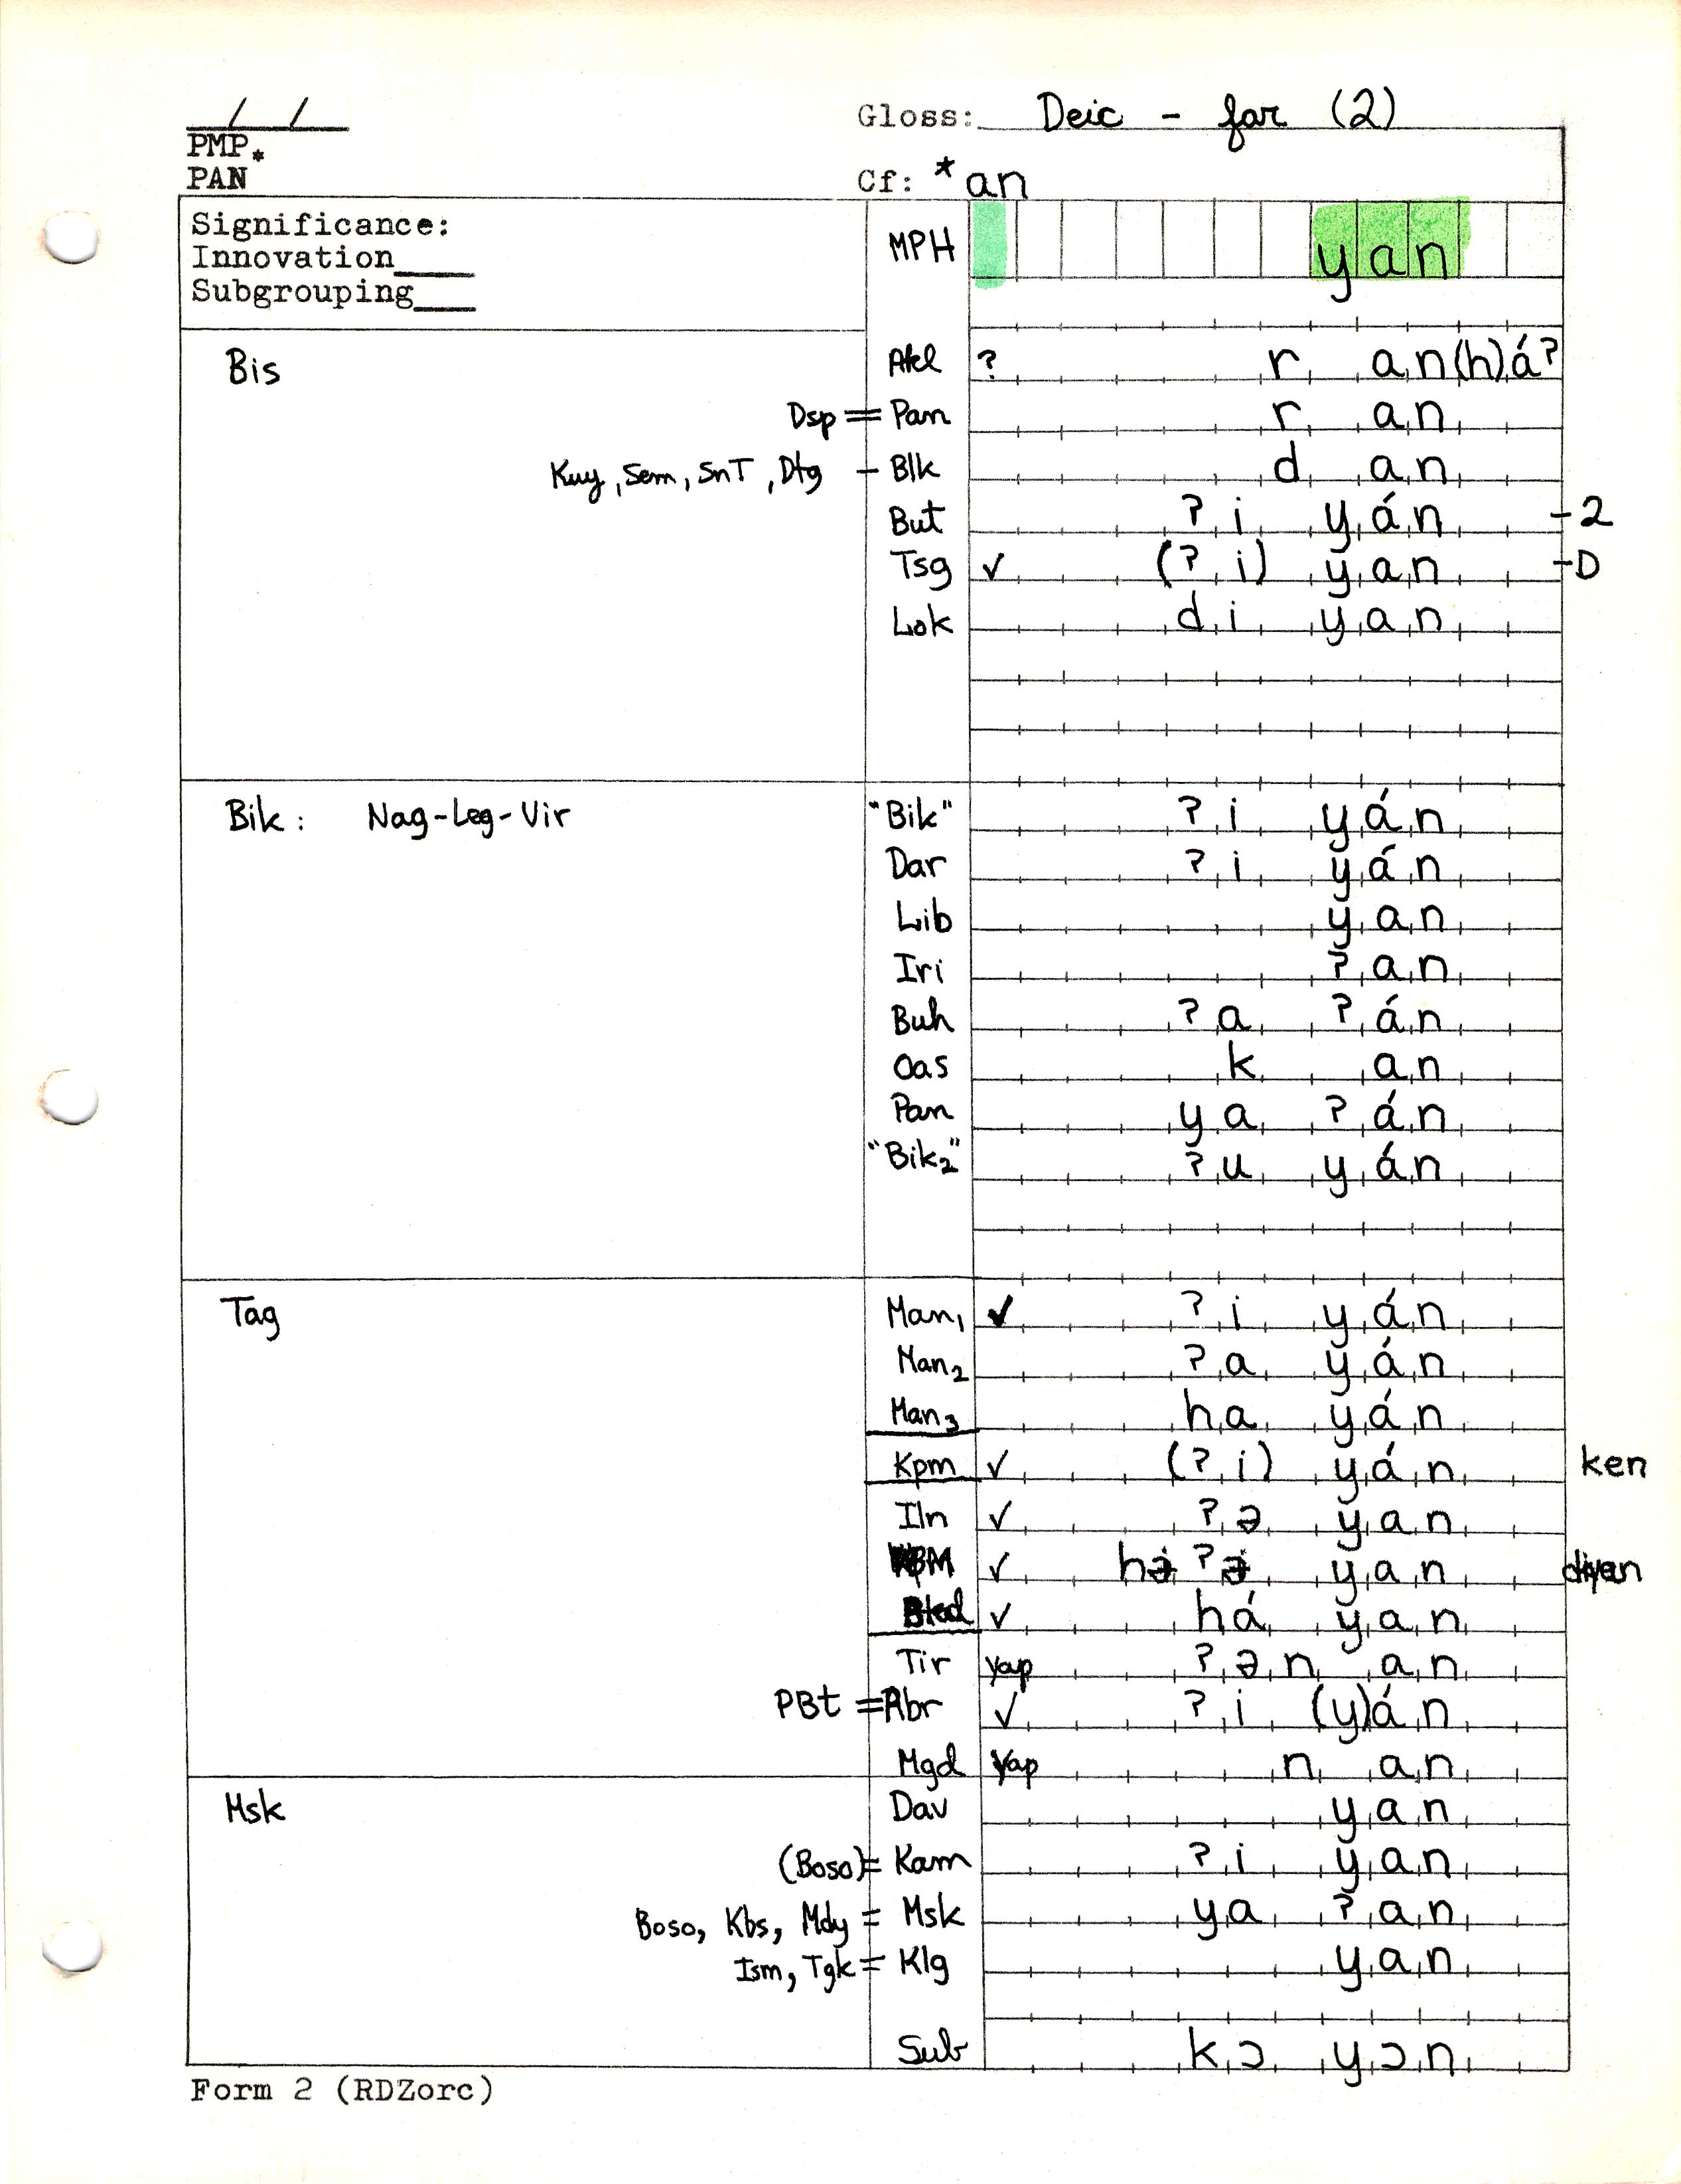 / /
Gloss: Deic - far (2)
PMP *
PAN
Cf: *an
Significance:
Innovation____
Subgrouping____
MPH yan
Bis
Akl ? r an(h)áʔ
Dsp = Pan r an
Kuy, Sem, SnT, Dtg - Blk d an
But ʔi yán -2
Tsg ✓ (ʔi) yan -D
Lok di yan
Bik: Nag-Leg-Vir
"Bik" ʔi yán
Dar ʔi yán
Lib yan
Iri ʔan
Buh ʔa ʔán
Oas k an
Pan ya ʔán
"Bik2" ʔu yán
Tag
Man1 ✓ ʔi yán
Man2 ʔa yán
Man3 ha yán
Kpm ✓ (ʔi) yán ken
Iln ✓ ʔə yan
✓ yan
✓ há yan
Tir yap ʔən an
PBt = Abr ✓ ʔi (y)án
Mgd yap n an
Msk
Dav yan
(Boso) = Kam ʔi yan
Boso, Kbs, Mdy = Msk ya ʔan
Ism, Tgk = Klg yan
Sub kɔ yɔn
Form 2 (RDZorc)